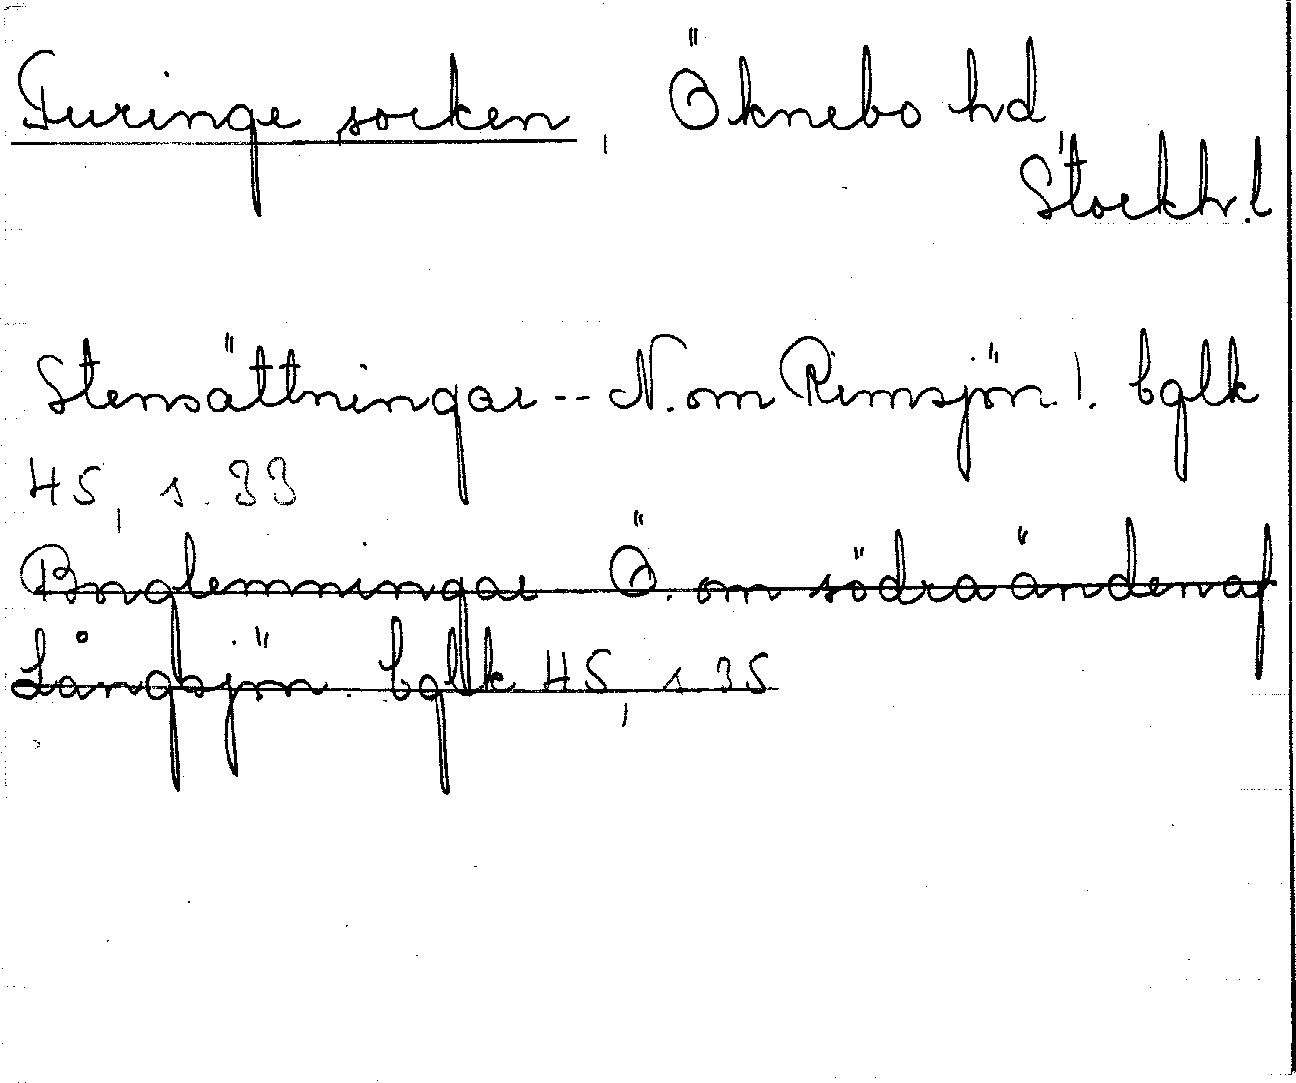 Turinge socken, Öknebo hd,
Stockh.l
Stensättningar -- N. om Rimsjön!. bglk
45, s. 33
Bnglemningar Ö. om södra änden af
Långsjön. bglk 45, s 35